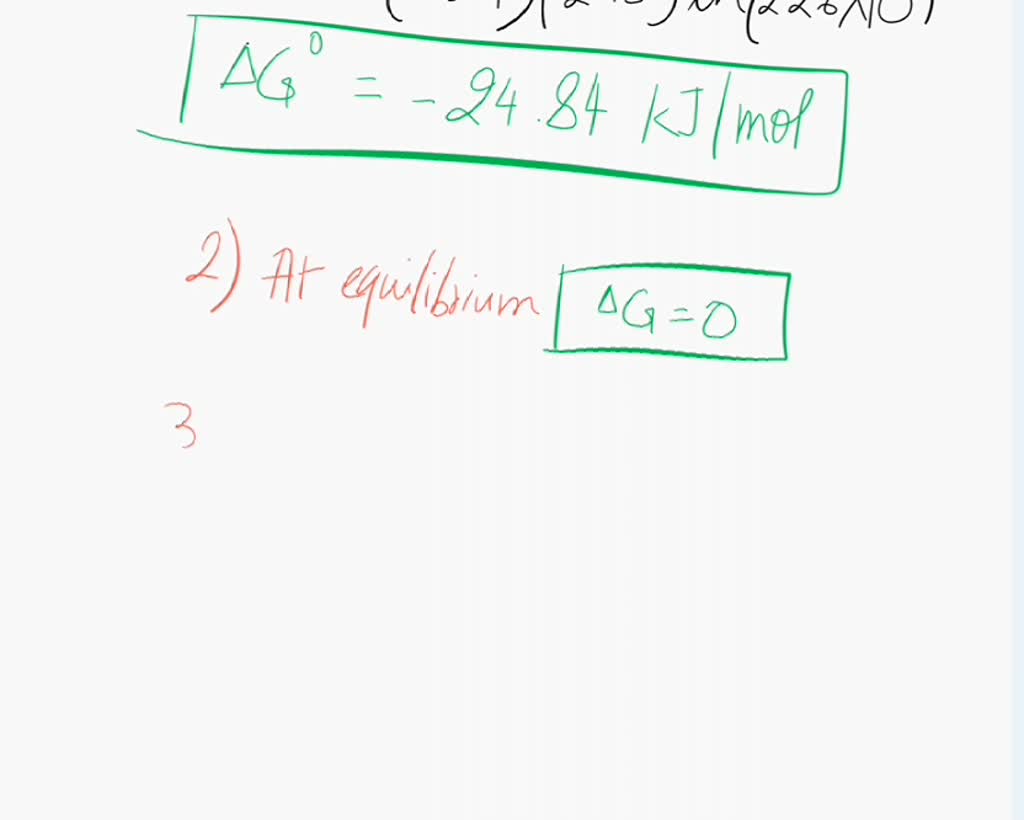 ΔG⁰ = -24.84 kJ/mol
2) At equilibrium ΔG=0
3